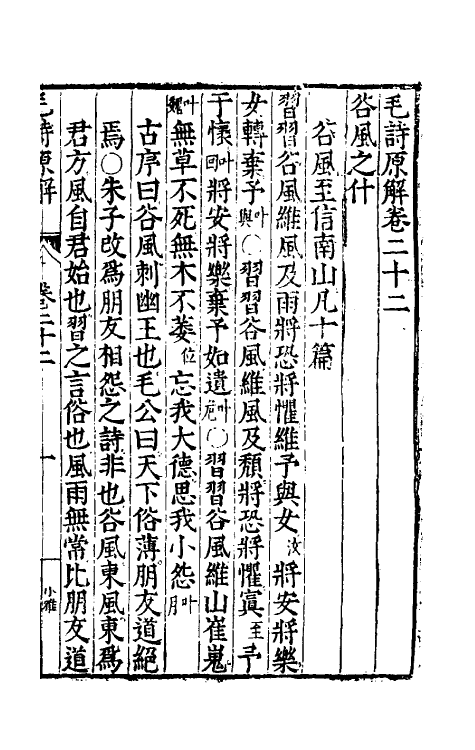 毛詩原解卷二十二
谷風之什
谷風至信南山凡十篇
習習谷風維風及雨將恐將懼維予與女汝將安將樂
女轉棄予叶與○習習谷風維風及頹將恐將懼寘至予
于懷叶回將安將樂棄予如遺叶危○習習谷風維山崔嵬
叶魏無草不死無木不萎位忘我大德思我小怨叶月
古序曰谷風刺幽王也毛公曰天下俗薄朋友道絕
焉○朱子改爲朋友相怨之詩非也谷風東風東爲
君方風自君始也習之言俗也風雨無常比朋友道
毛詩原解 卷二十二 一 小雅